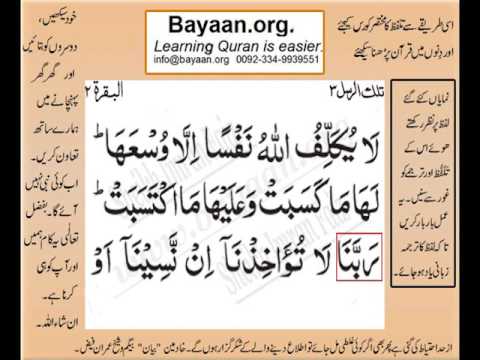 Bayaan.org.
Learning Quran is easier.
info@bayaan.org 0092-334-9939551
اسی طریقے سے تلفظ کا مختصر کورس کیجئے
اور دنوں میں قرآن پڑھنا سیکھئے
خود سیکھیں،
دوسروں کو بتائیں
اور گھر گھر
پہنچانے میں
ہمارے ساتھ
تعاون کریں۔
اب کوئی نبی نہیں
آئے گا۔ بفضل
تعالٰی یہ کام ہمیں
اور آپ کو ہی
کرنا ہے۔
ان شاء اللہ۔
تلك الرسل ٣
البقرة ٢
لَا يُكَلِّفُ اللهُ نَفْسًا اِلَّا وُسْعَهَا ؕ
لَهَا مَا كَسَبَتْ وَعَلَيْهَا مَا اكْتَسَبَتْ ؕ
رَبَّنَا لَا تُؤَاخِذْنَاۤ اِنْ نَّسِيْنَاۤ اَوْ
نمایاں کئے گئے
لفظ پر نظر رکھتے
ھوئے اس کے
تلفظ اور ترجمے کو
غور سے سنیں۔ یہ
عمل بار بار کریں
تا کہ لفظ کا ترجمہ
زبانی یاد ہو جائے۔
از حد احتیاط کی گئی ہے پھر بھی اگر کوئی غلطی مل جائے تو اطلاع دینے والے کے شکر گزار ہوں گے۔ خادمین "بیان" بیگم و شیخ عمران فیض۔